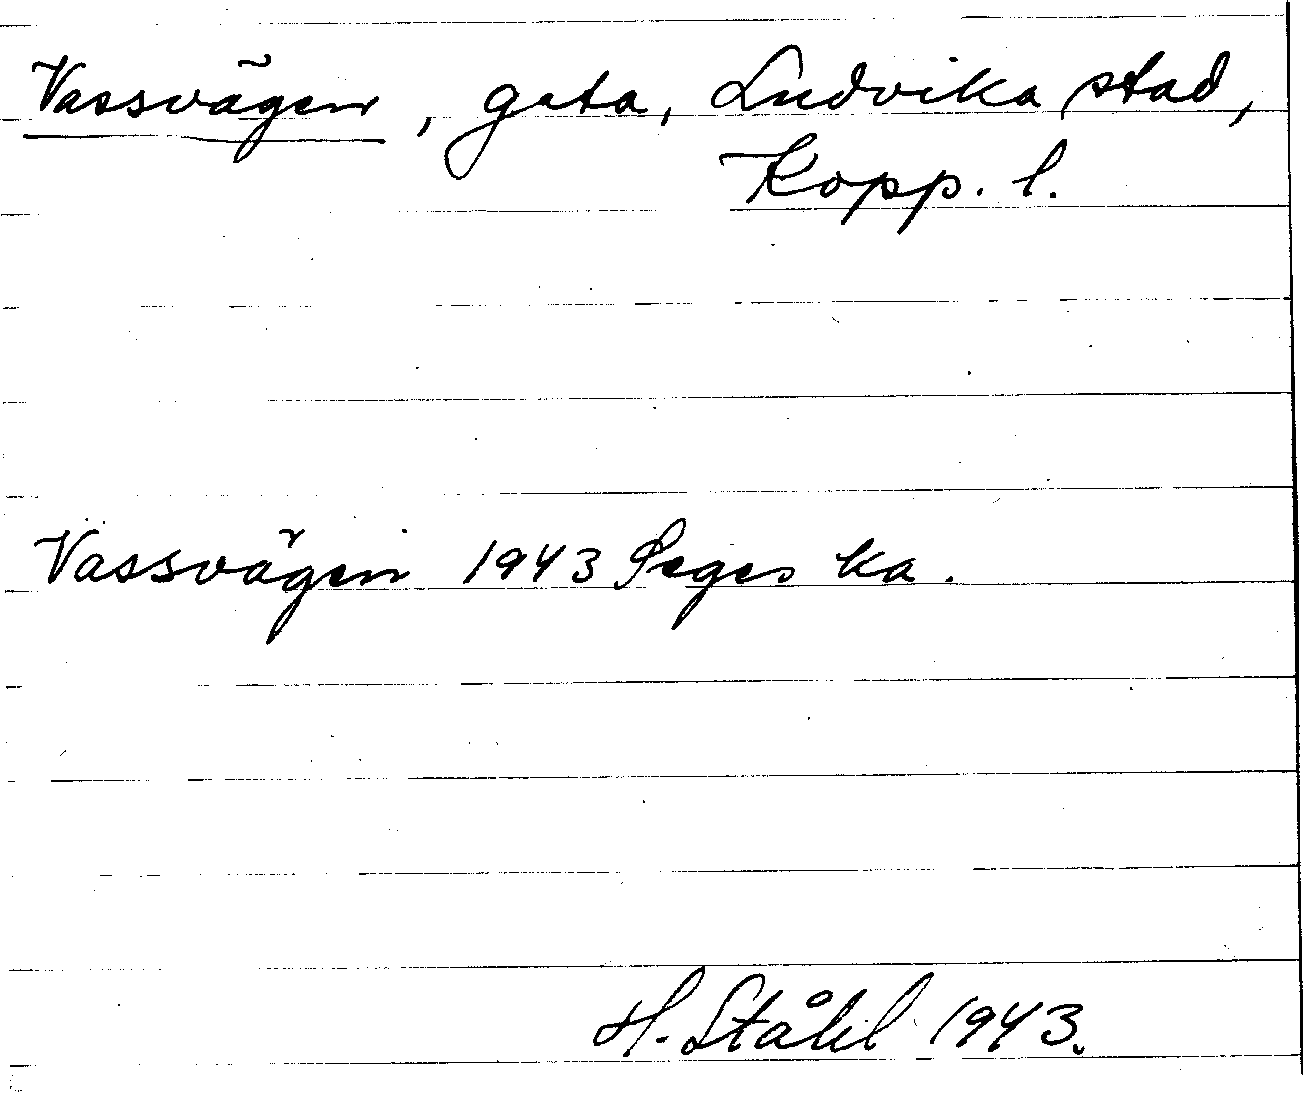 Vassvägen, gata, Ludvika stad,
Kopp. l.
Vassvägen 1943 Seges ka.
H. Ståhl 1943.